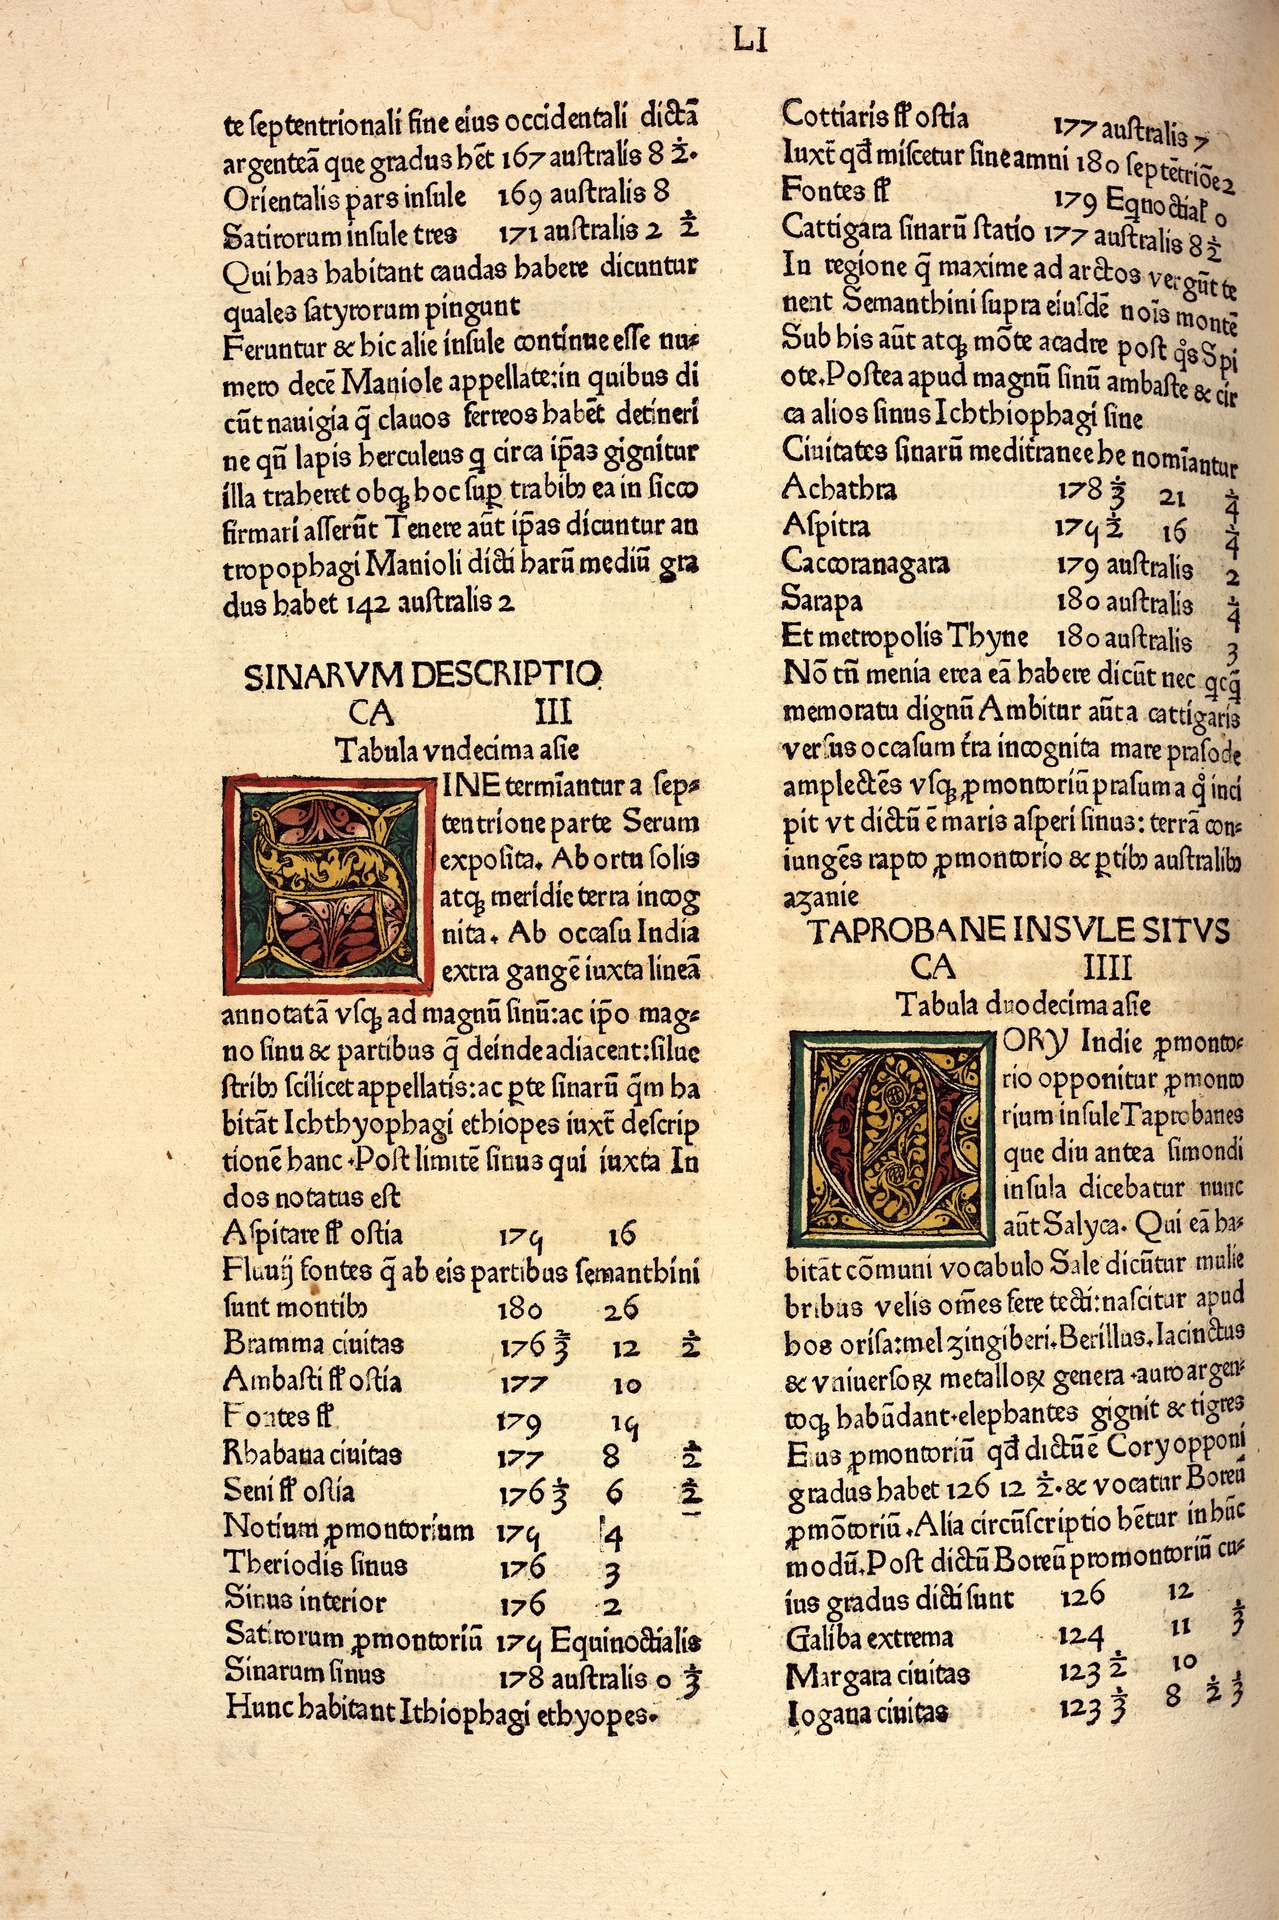 LI
te septentrionali fine eius occidentali dictā
argenteā que gradus hēt 167 australis 8 ½.
Orientalis pars insule 169 australis 8
Satirorum insule tres 171 australis 2 ½
Qui has habitant caudas habere dicuntur
quales satyrorum pingunt
Feruntur & hic alie insule continue esse nu⸗
mero decē Maniole appellate:in quibus di
cūt nauigia q̄ clauos ferreos habēt detineri
ne qn̄ lapis herculeus q circa ip̄as gignitur
illa traheret obqꝫ hoc sup̲ trabibꝰ ea in sicco
firmari asserūt Tenere aūt ip̄as dicuntur an
tropophagi Manioli dicti harū mediū gra
dus habet 142 australis 2
SINARVM DESCRIPTIO
CA III
Tabula vndecima asie
SINE termīantur a sep⸗
tentrione parte Serum
exposita. Ab ortu solis
atqꝫ meridie terra incog
nita. Ab occasu India
extra gangē iuxta lineā
annotatā vsqꝫ ad magnū sinū:ac ip̄o mag⸗
no sinu & partibus q̄ deinde adiacent:silue
stribꝰ scilicet appellatis:ac ꝑte sinarū q̄m ha
bitāt Ichthyophagi ethiopes iuxt̄ descrip
tionē hanc .Post limitē sinus qui iuxta In
dos notatus est
Aspitare fl̄ ostia 175 16
Fluuij fontes q̄ ab eis partibus semanthini
sunt montibꝰ 180 26
Bramma ciuitas 176 ⅔ 12 ½
Ambasti fl̄ ostia 177 10
Fontes fl̄ 179 15
Rhabana ciuitas 177 8 ½
Seni fl̄ ostia 176 ⅓ 6 ½
Notium ꝓmontorium 175 4
Theriodis sinus 176 3
Sinus interior 176 2
Satirorum ꝓmontoriū 175 Equinoctialis
Sinarum sinus 178 australis 0 ⅓
Hunc habitant Ithiophagi ethyopes.
Cottiaris fl̄ ostia 177 australis 7
Iuxt̄ qd̄ miscetur sine amni 180 septētriōe 2
Fontes fl̄ 179 Eqnoctial̄ 0
Cattigara sinarū statio 177 australis 8 ½
In regione q̄ maxime ad arctos vergūt te
nent Semanthini supra eiusdē noīs montē
Sub his aūt atqꝫ mōte acadre post qͦs Spi
ote.Postea apud magnū sinū ambaste & cir
ca alios sinus Ichthiophagi sine
Ciuitates sinarū meditr̄anee he nomīantur
Achathra 178 ⅓ 21 ¼
Aspitra 175 ½ 16 ¼
Caccoranagara 179 australis 2
Sarapa 180 australis ¼
Et metropolis Thyne 180 australis 3
Nō tn̄ menia erea eā habere dicūt nec qcq̄
memoratu dignū Ambitur aūt a cattigaris
versus occasum tr̄a incognita mare prasode
amplectēs vsqꝫ ꝓmontoriū prasum a qͦ inci
pit vt dictū ē maris asperi sinus: terrā con⸗
iungēs rapto ꝓmontorio & ꝑtibꝰ australibꝰ
azanie
TAPROBANE INSVLE SITVS
CA IIII
Tabula duodecima asie
CORY Indie ꝓmonto⸗
rio opponitur ꝓmonto
rium insule Taprobanes
que diu antea simondi
insula dicebatur nunc
aūt Salyca. Qui eā ha⸗
bitāt cōmuni vocabulo Sale dicūtur mulie
bribus velis om̄es fere tecti:nascitur apud
hos orisa:mel zingiberi.Berillus.Iacinctus
& vniuersoꝝ metalloꝝ genera .auro argen⸗
toqꝫ habūdant.elephantes gignit & tigres
Eius ꝓmontoriū qd̄ dictū ē Cory opponi
gradus habet 126 12 ½.& vocatur Boreū
ꝓmōtoriū.Alia circūscriptio hētur in hūc
modū.Post dictū Boreū promontoriū cu⸗
ius gradus dicti sunt 126 12
Galiba extrema 124 11 ⅓
Margara ciuitas 123 ½ 10
Iogana ciuitas 123 ⅓ 8 ½ ⅓